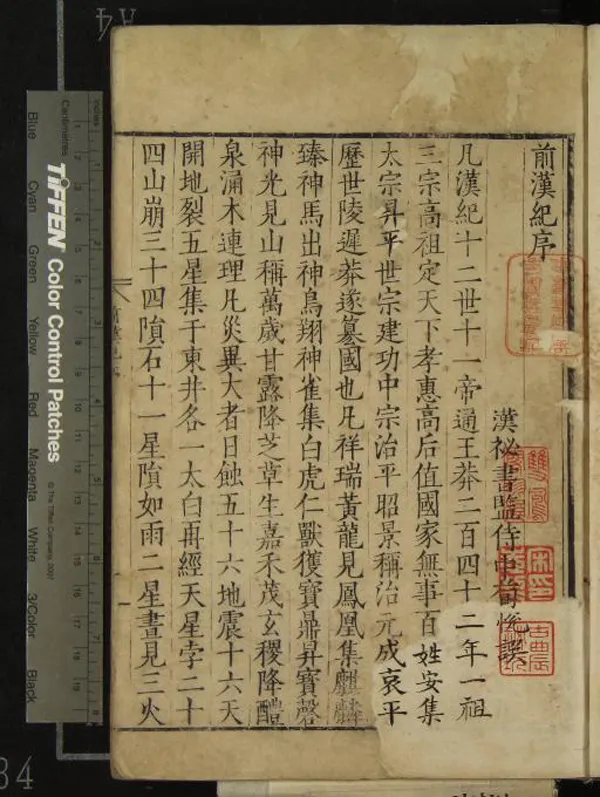 前漢紀序
漢祕書監侍中荀悅譔
凡漢紀十二世十一帝通王莽二百四十二年一祖
三宗高祖定天下孝惠高后值國家無事百姓安集
太宗昇平世宗建功中宗治平昭景稱治元成哀平
歷世陵遲莽遂篡國也凡祥瑞黃龍見鳳凰集麒麟
臻神馬出神鳥翔神雀集白虎仁獸獲寶鼎昇寶磬
神光見山稱萬歲甘露降芝草生嘉禾茂玄稷降醴
泉涌木連理凡災異大者日蝕五十六地震十六天
開地裂五星集于東井各一太白再經天星孛二十
四山崩三十四隕石十一星隕如雨二星晝見三火
雙鳳
Centimetres
Inches
TIFFEN Color Control Patches
© The Tiffen Company, 2007
Blue
Cyan
Green
Yellow
Red
Magenta
White
3/Color
Black
A4
34